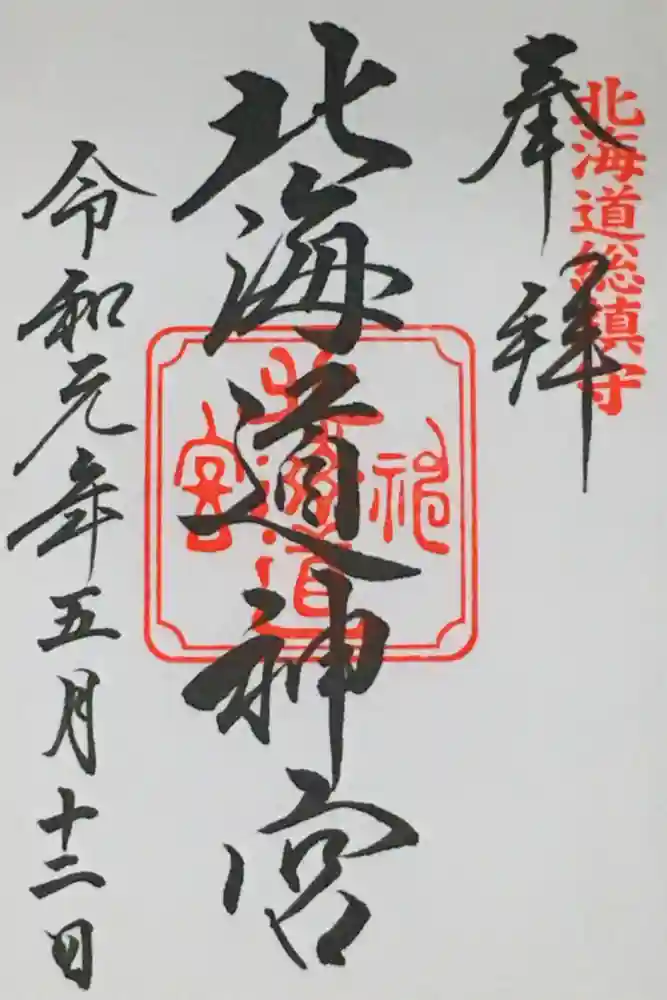 北海道総鎮守
奉拝
北海道神宮
北海道神宮
令和元年五月十二日